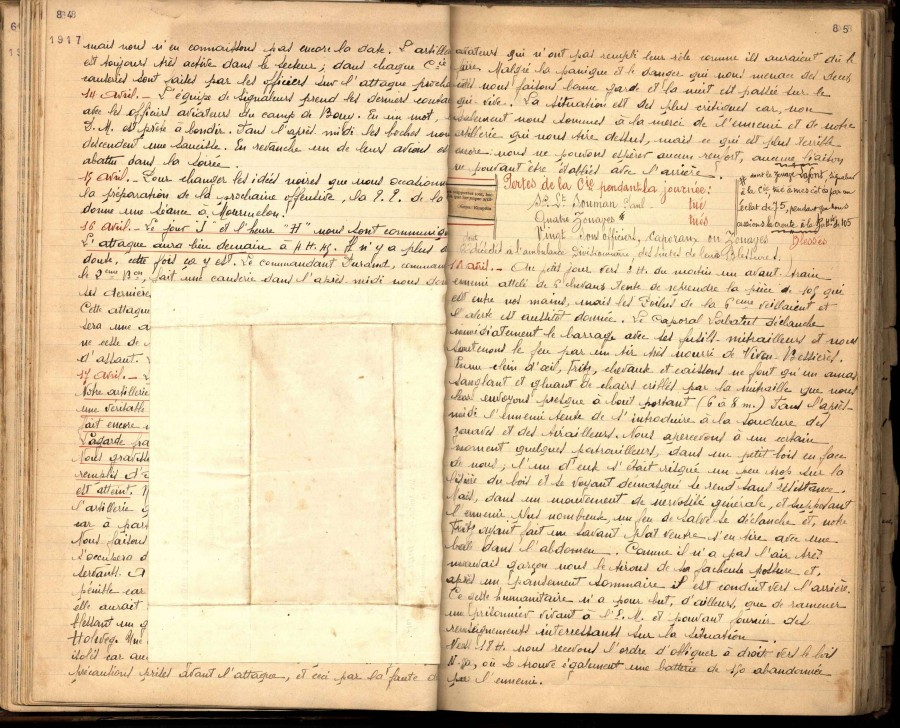 84
1917
mais nous n'en connaissons pas encore la date. L'artille
est toujours très active dans le secteur ; dans chaque Cie
causeries sont faites par les officiers sur l'attaque procha
14 avril. – L'équipe de signaleurs prend les derniers contac
avec les officiers aviateurs du camp de Bouy. En un mot,
D.M. est prête à bondir. Dans l'après midi les boches nou
descendent une saucisse. En revanche un de leurs avions es
abattu dans la soirée.
15 avril. – Pour changer les idées noires que nous occasionn
la préparation de la prochaine offensive, la
donne une séance à Mourmelon !
16 avril. – Le jour "J" et l'heure "H" nous sont communiqu
L'attaque aura lieu demain à 4 H. 45. Il n'y a plus d
doute, cette fois ça y est. Le commandant Durand, comman
le 2ème Bon, fait une causerie dans l'après midi nous don
ses dernières
Cette attaque
sera une a
ne cesse de
d'assaut.
17 avril. –
Notre artillerie
une véritable
fait encore
Lagarde pa
Nous gravis
remplis d'
est atteint.
l'artillerie
car à par
Nous faisons
s'occupera d
servants.
pénible car
elle aurait
blessant un
Holweg. Une
isolés car au
précautions prises avant l'attaque, et ceci par la faute d
85
aviateurs qui n'ont pas rempli leur rôle comme ils auraient dû le
faire. Malgré la panique et le danger qui nous menace des deux
côtés nous faisons bonne garde et la nuit est passée sur le
qui-vive. La situation est des plus critiques car, non
seulement nous sommes à la merci de l'ennemi et de notre
artillerie qui nous tire dessus, mais ce qui est plus terrible
encore nous ne pouvons espérer aucun renfort, aucune liaison
ne pouvant être établie avec l'arrière.
Pertes de la Cie pendant la journée :
S/s Lt Douman tué
Quatre Zouaves tués
Vingt sous officiers, caporaux ou Zouaves Blessés
décédés à l'ambulance divisionnaire des suites de leurs blessures.
18 avril. – Au petit jour vers 3 H. du matin un avant train
ennemi attelé de 6 chevaux tente de reprendre la pièce de 105 qui
est entre nos mains, mais les Poilus de la 6ème veillaient et
l'alerte est aussitôt donnée. Le Caporal Labatut déclanche
immédiatement le barrage avec ses fusils-mitrailleurs et nous
soutenons le feu par un tir très nourri de Viven-Bessières.
En un clin d'œil, Fritz, chevaux et caissons ne font qu'un amas
sanglant et gluant de chairs criblés par la mitraille que nous
leur envoyons presque à bout portant (6 à 8 m.) Dans l'après-
midi l'ennemi tente de s'introduire à la soudure des
zouaves et des tirailleurs. Nous apercevons à un certain
moment quelques patrouilleurs, dans un petit bois en face
de nous ; l'un d'eux s'était risqué un peu trop sur la
lisière du bois et se voyant démasqué se rend sans résistance.
Mais, dans un mouvement de nervosité générale, et supposant
l'ennemi plus nombreux, un feu de salve se déclanche et, notre
Fritz ayant fait un savant plat ventre s'en tire avec une
balle dans l'abdomen. Comme il n'a pas l'air très
mauvais garçon nous le tirons de sa fâcheuse posture et,
après un pansement sommaire il est conduit vers l'arrière.
Ce geste humanitaire n'a pour but, d'ailleurs, que de ramener
un prisonnier vivant à l'E.M. et pouvant fournir des
renseignements intéressants sur la situation.
Vers 18 H. nous recevons l'ordre d'obliger à droit vers le bois
où se trouve également une batterie de 150 abandonnée
par l'ennemi.